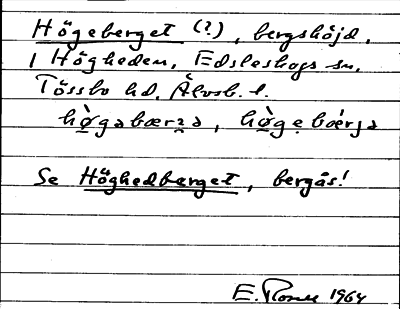 Högeberget (?), bergshöjd.
i Högheden, Edsleskogs sn.
Tössbo hd. Älvsb. l.
hø̀gəbærɜə, hø̀gebǽrjə
Se Höghedberget, bergås!
E. 1964